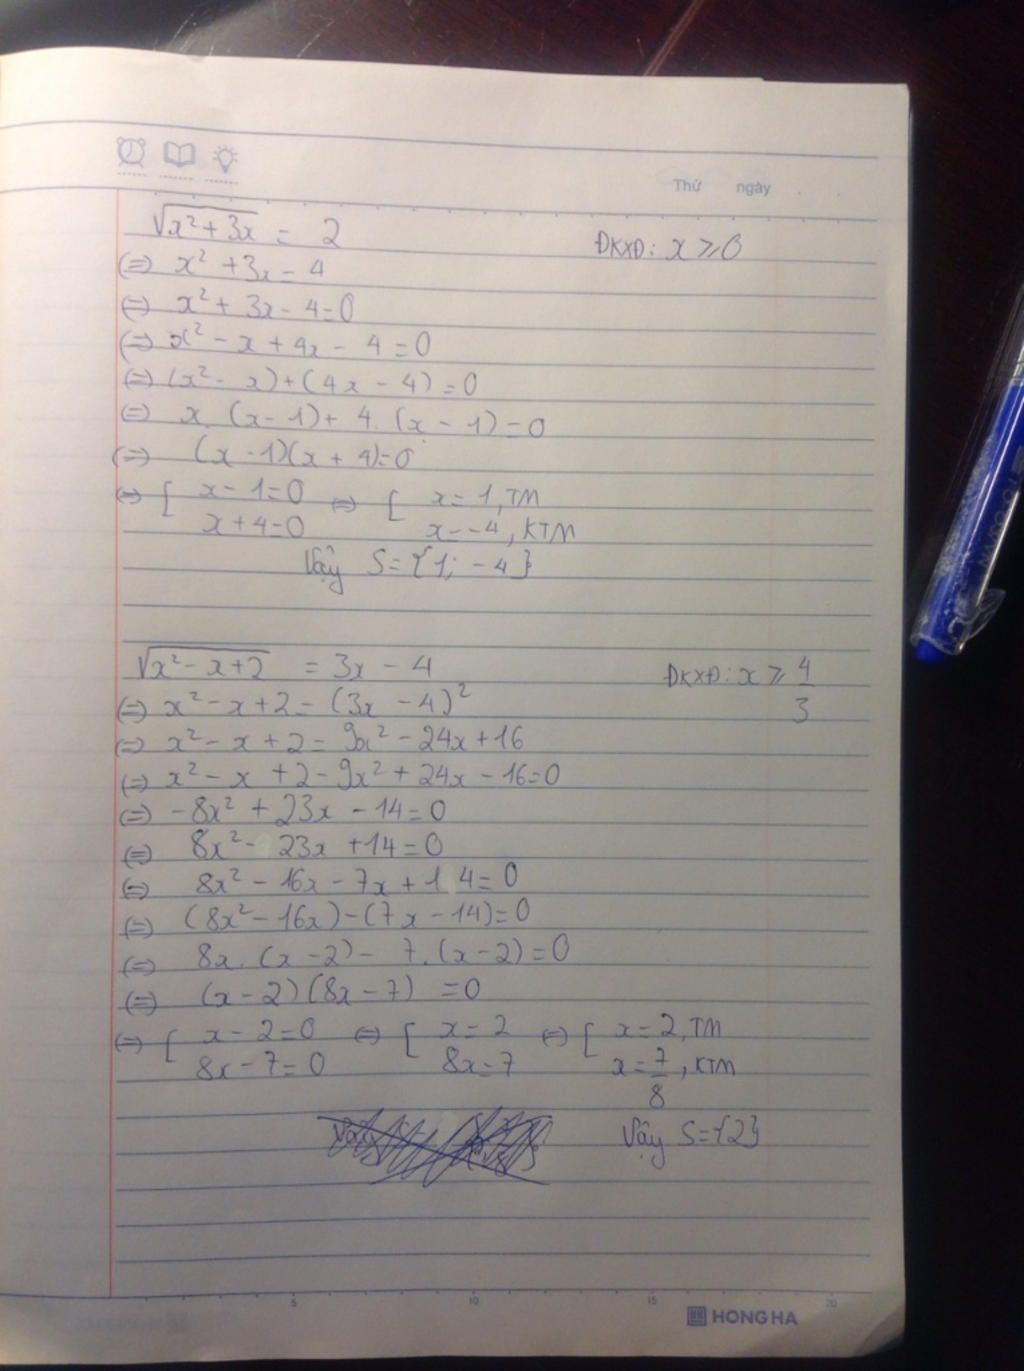 Thứ ngày
√(x² + 3x) = 2 ĐKXĐ: x ⩾ 0
(=) x² + 3x = 4
(=) x² + 3x - 4 = 0
(=) x² - x + 4x - 4 = 0
(=) (x² - x) + (4x - 4) = 0
(=) x. (x - 1) + 4. (x - 1) = 0
(=) (x - 1)(x + 4) = 0
(=) [ x - 1 = 0 (=) [ x = 1, TM
x + 4 = 0 x = -4, KTM
Vậy S = {1; -4}
√(x² - x + 2) = 3x - 4 ĐKXĐ: x ⩾ 4/3
(=) x² - x + 2 = (3x - 4)²
(=) x² - x + 2 = 9x² - 24x + 16
(=) x² - x + 2 - 9x² + 24x - 16 = 0
(=) -8x² + 23x - 14 = 0
(=) 8x² - 23x + 14 = 0
(=) 8x² - 16x - 7x + 14 = 0
(=) (8x² - 16x) - (7x - 14) = 0
(=) 8x. (x - 2) - 7. (x - 2) = 0
(=) (x - 2) (8x - 7) = 0
(=) [ x - 2 = 0 (=) [ x = 2 (=) [ x = 2, TM
8x - 7 = 0 8x = 7 x = 7/8, KTM
Vậy S = {2}
5 10 15 20
HONG HA